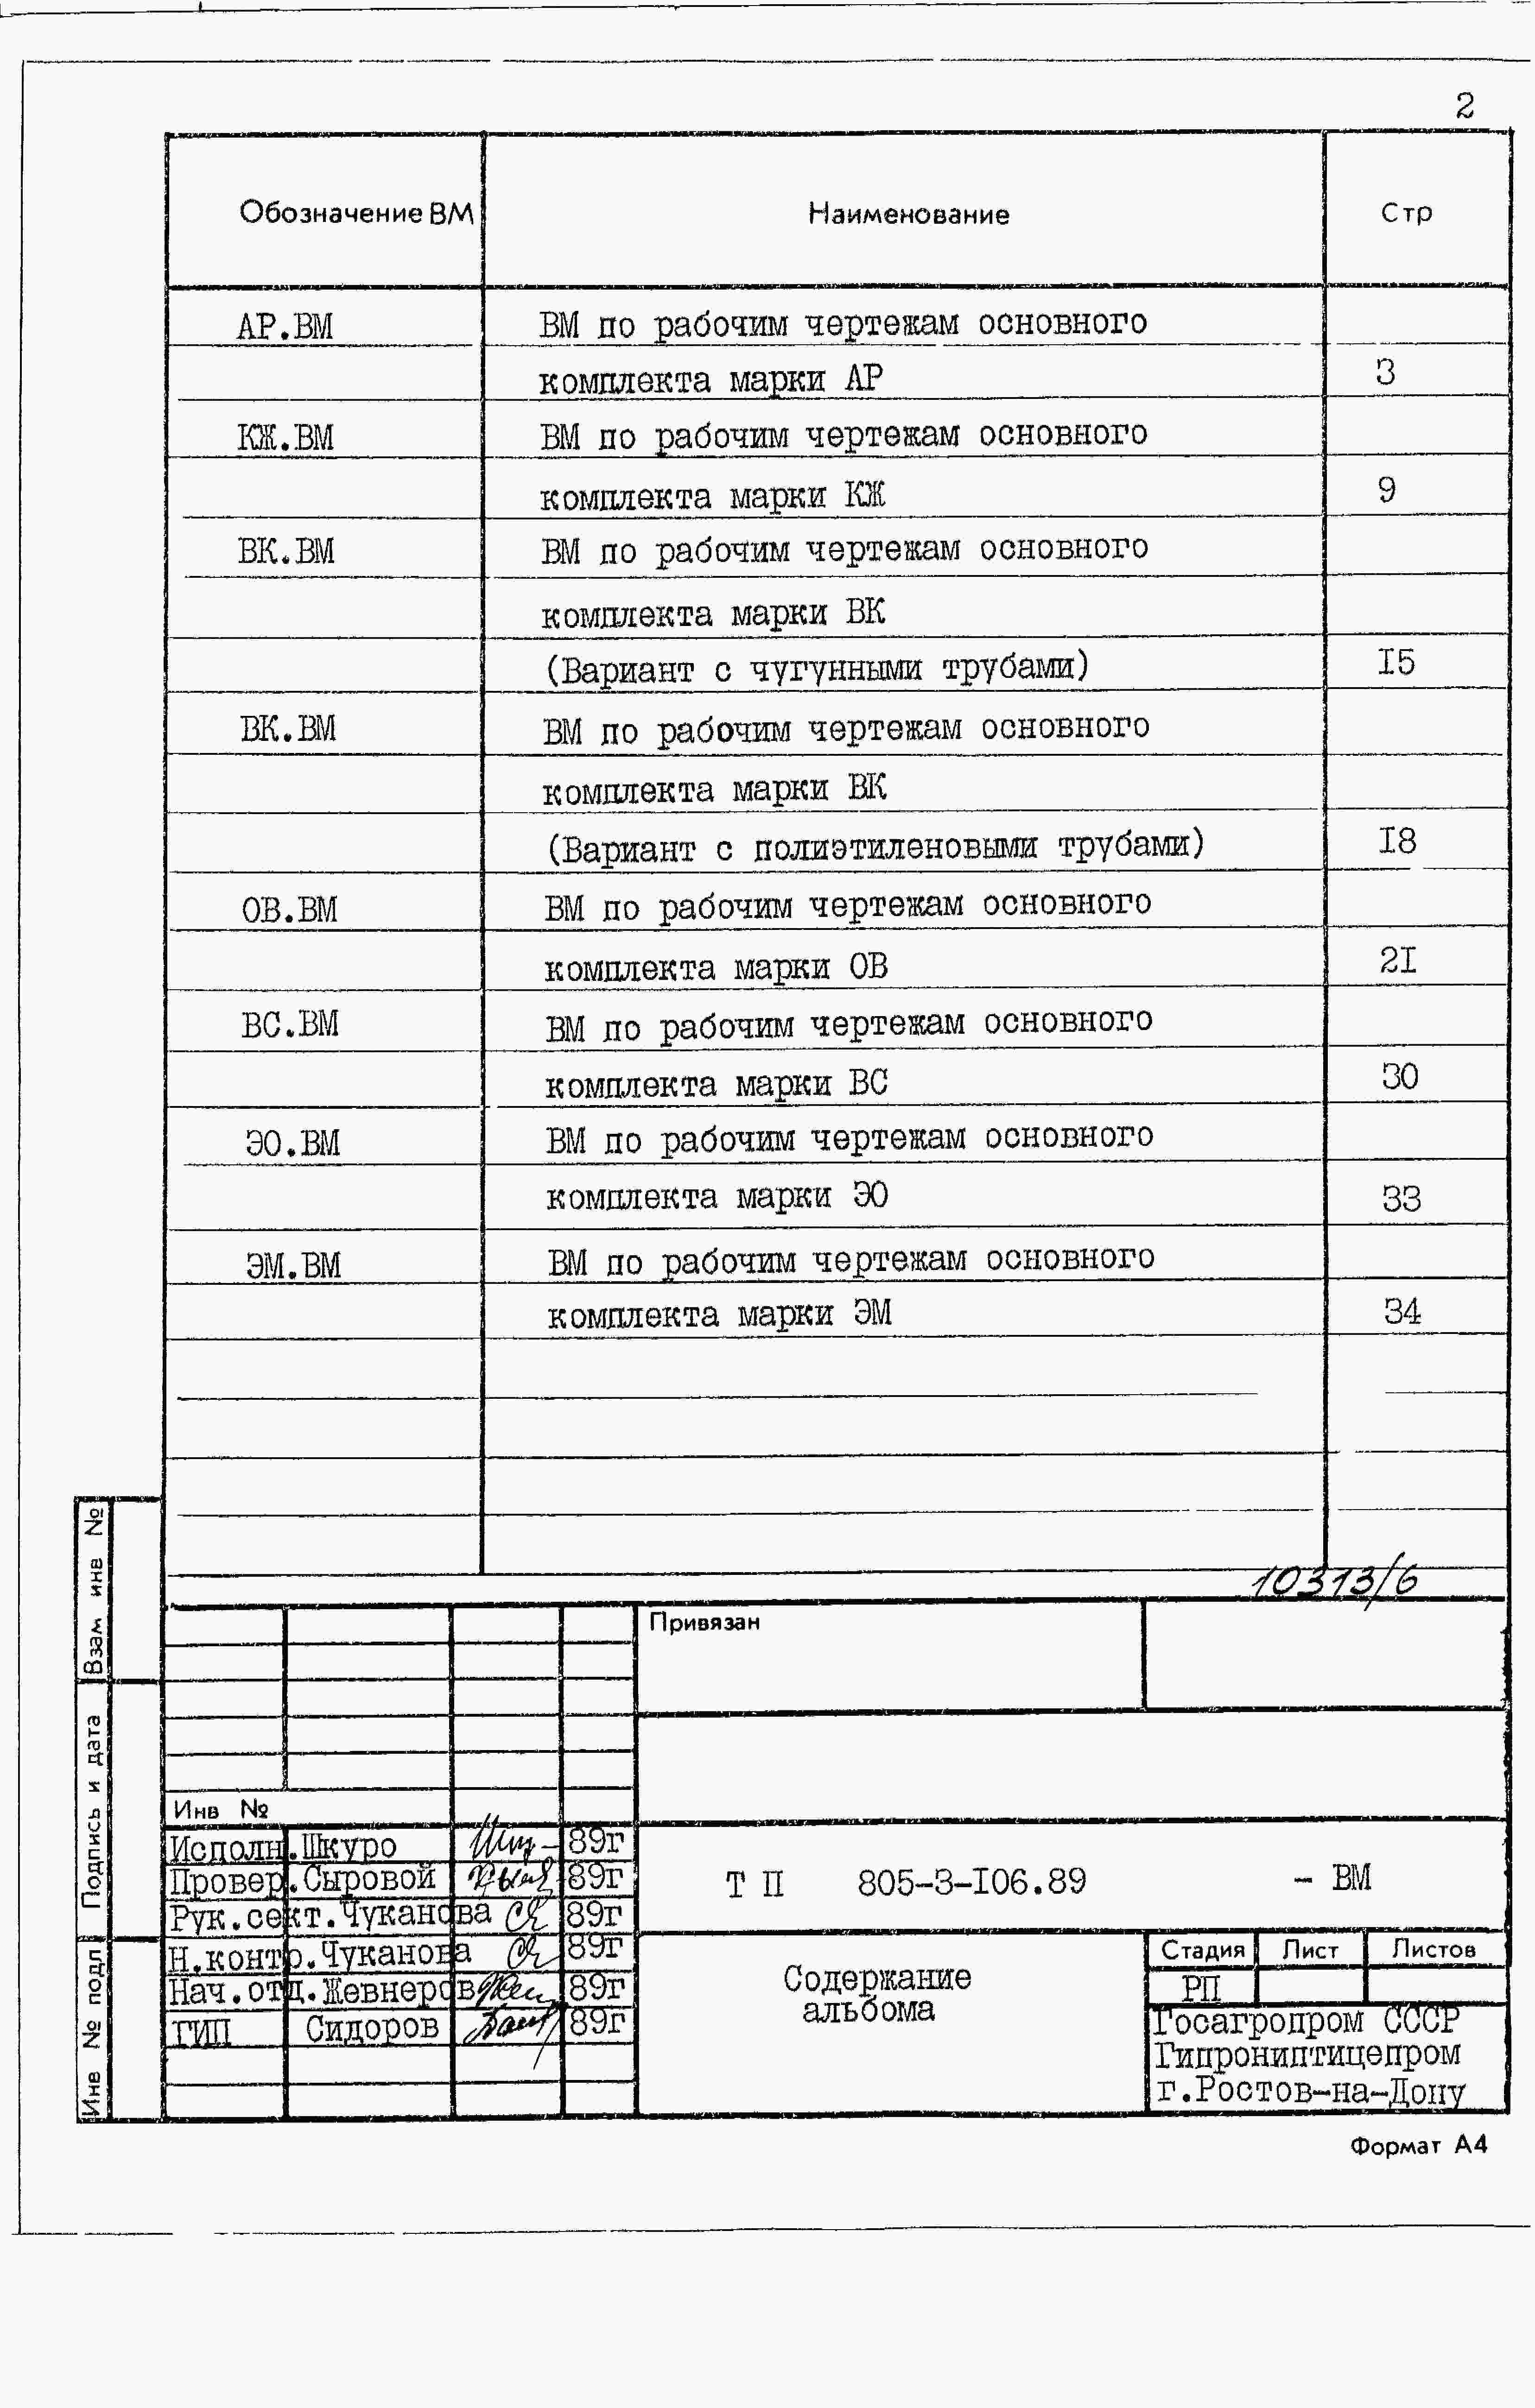 2
Обозначение ВМ Наименование Стр
АР.ВМ ВМ по рабочим чертежам основного
комплекта марки АР 3
КЖ.ВМ ВМ по рабочим чертежам основного
комплекта марки КЖ 9
ВК.ВМ ВМ по рабочим чертежам основного
комплекта марки ВК
(Вариант с чугунными трубами) I5
ВК.ВМ ВМ по рабочим чертежам основного
комплекта марки ВК
(Вариант с полиэтиленовыми трубами) I8
ОВ.ВМ ВМ по рабочим чертежам основного
комплекта марки ОВ 2I
ВС.ВМ ВМ по рабочим чертежам основного
комплекта марки ВС 30
ЭО.ВМ ВМ по рабочим чертежам основного
комплекта марки ЭО 33
ЭМ.ВМ ВМ по рабочим чертежам основного
комплекта марки ЭМ 34
10313/6
Привязан
Взам инв №
Подпись и дата
Инв № подл
Инв №
Исполн. Шкуро 89г
Провер. Сыровой 89г
Рук.сект.Чуканова 89г
Н.контр.Чуканова 89г
Нач.отд.Жевнеров 89г
ГИП Сидоров 89г
Т П 805-3-I06.89 - ВМ
Содержание
альбома
Стадия Лист Листов
РП
Госагропром СССР
Гипрониптицепром
г.Ростов-на-Дону
Формат А4